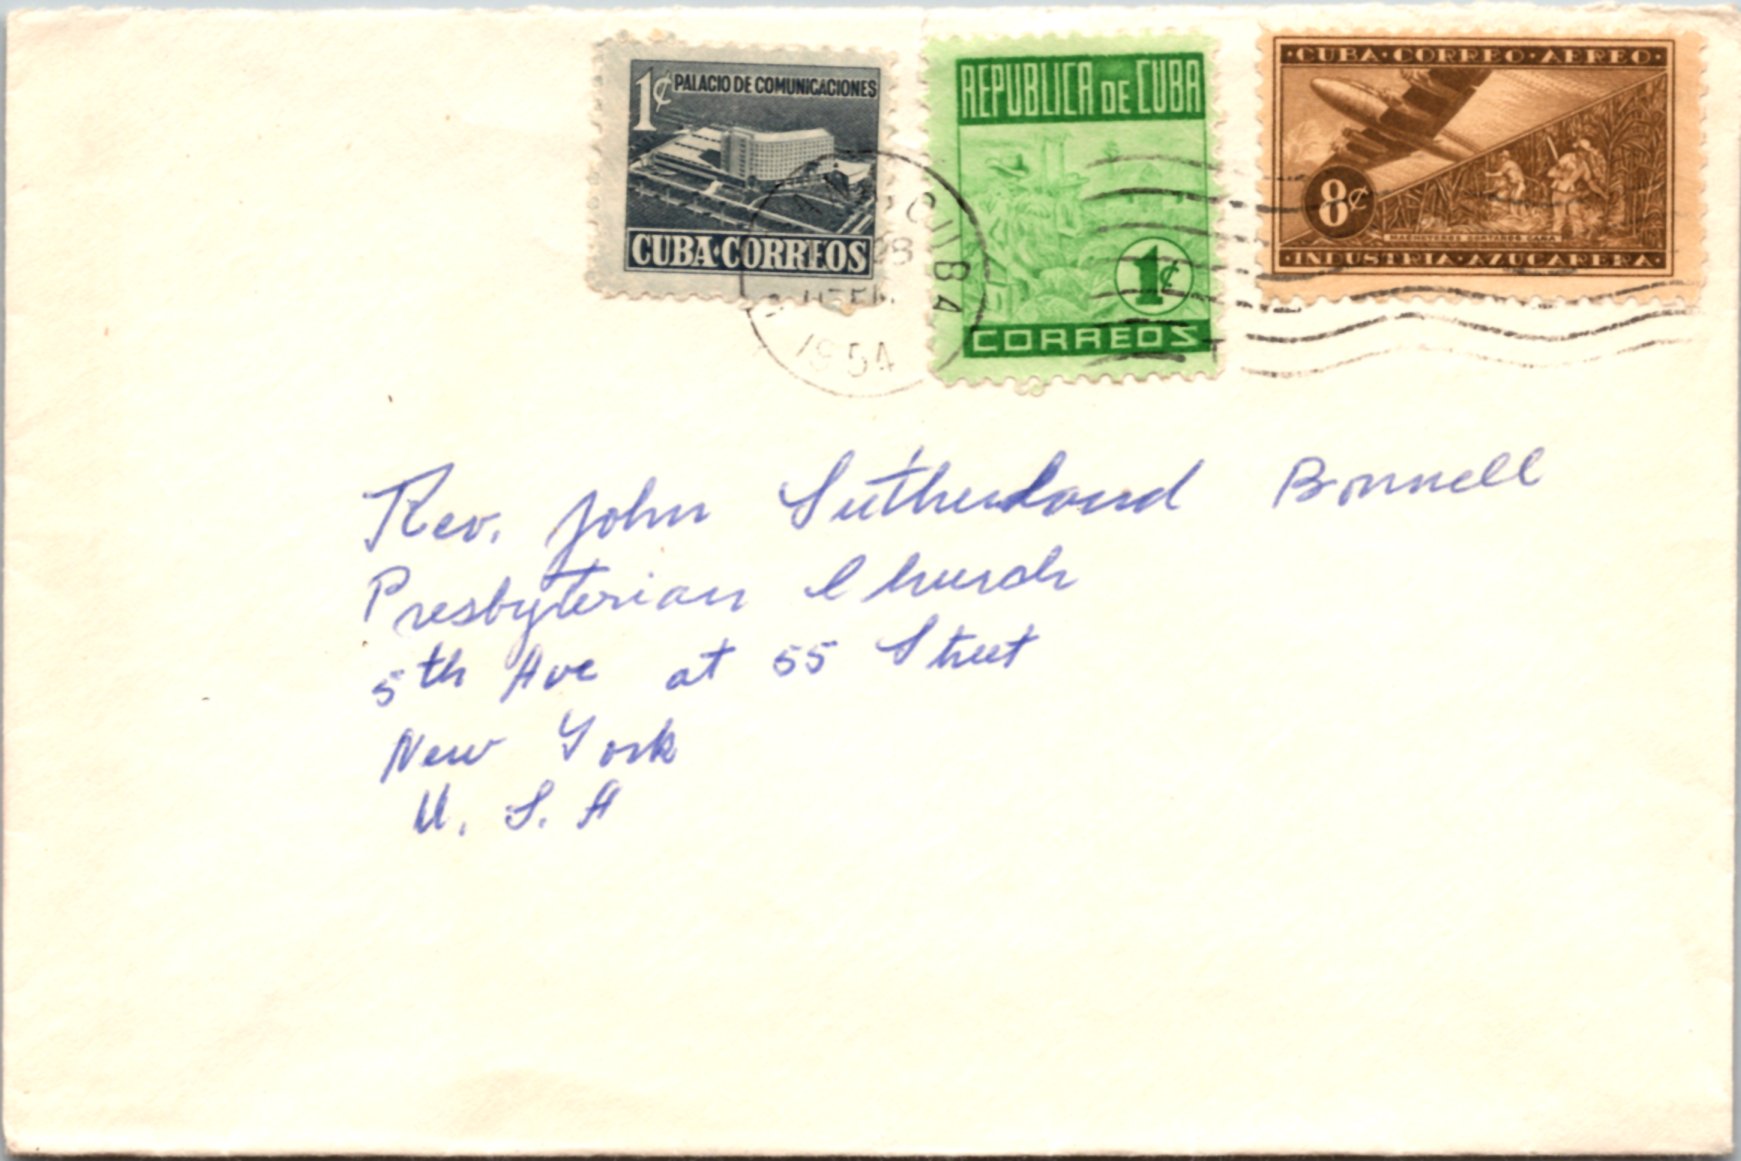 1¢ PALACIO DE COMUNICACIONES
CUBA·CORREOS
REPUBLICA DE CUBA
1¢
CORREOS
·CUBA·CORREO·AEREO·
8¢
MACHETEROS CORTANDO CAÑA
·INDUSTRIA·AZUCARERA·
CUBA
28
1954
Rev. John Sutherland Bonnell
Presbyterian Church
5th Ave at 55 Street
New York
U. S. A